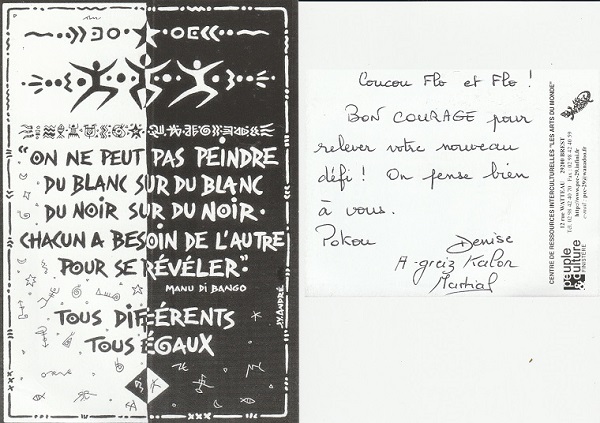 "ON NE PEUT PAS PEINDRE
DU BLANC SUR DU BLANC
DU NOIR SUR DU NOIR.
CHACUN A BESOIN DE L'AUTRE
POUR SE RÉVÉLER."
MANU DI BANGO
TOUS DIFFÉRENTS
TOUS ÉGAUX
J.Y. ANDRÉ
Coucou Flo et Flo !
BON COURAGE pour
relever votre nouveau
défi ! On pense bien
à vous.
Pokou Denise
A-greiz Kalon
Martial
CENTRE DE RESSOURCES INTERCULTURELLES "LES ARTS DU MONDE"
12 rue WATTEAU 29200 BREST
Tél. 02 98 42 40 70 Fax : 02 98 42 40 59
peuple
&culture
FINISTÈRE